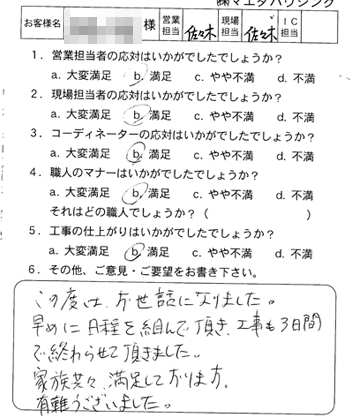 ㈱マエダハウジング
お客様名 様 営業担当 佐々木 現場担当 佐々木 IC担当
1．営業担当者の応対はいかがでしたでしょうか？
a. 大変満足 b. 満足 c. やや不満 d. 不満
2．現場担当者の応対はいかがでしたでしょうか？
a. 大変満足 b. 満足 c. やや不満 d. 不満
3．コーディネーターの応対はいかがでしたでしょうか？
a. 大変満足 b. 満足 c. やや不満 d. 不満
4．職人のマナーはいかがでしたでしょうか？
a. 大変満足 b. 満足 c. やや不満 d. 不満
それはどの職人でしょうか？（ ）
5．工事の仕上がりはいかがでしたでしょうか？
a. 大変満足 b. 満足 c. やや不満 d. 不満
6．その他、ご意見・ご要望をお書き下さい。
この度は、お世話になりました。
早めに日程を組んで頂き、工事も3日間
で終わらせて頂きました。
家族共々、満足しております。
有難うございました。